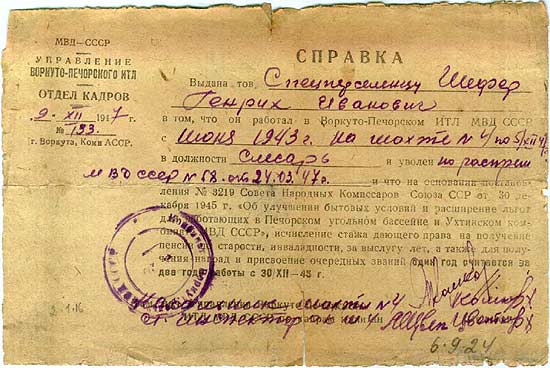 МВД—СССР
УПРАВЛЕНИЕ
ВОРКУТО-ПЕЧОРСКОГО ИТЛ
ОТДЕЛ КАДРОВ
9-XII 1947 г.
№ 193.
г. Воркута, Коми АССР
СПРАВКА
Выдана тов Спецпереселенцу Шефер
Генрих Иванович
в том, что он работал в Воркуто-Печорском ИТЛ МВД СССР
с июня 1943 г. на шахте № 4 по
в должности слесарь и уволен по распоряж
МВД СССР № 58 от 24.03.47 г. и что на основании постанов-
ления № 3219 Совета Народных Комиссаров Союза ССР от 30 де-
кабря 1945 г. «Об улучшении бытовых условий и расширение льгот
для работающих в Печорском угольном бассейне и Ухтинском ком-
МВД СССР», исчисление стажа дающего право на получение
пенсии по старости, инвалидности, за выслугу лет, а также для полу-
чения наград и присвоение очередных званий один год считается за
два года работы с 30 XII—45 г.
Начальник шахты № 4
Ст. Инспектор
2.1.16
6.9.24